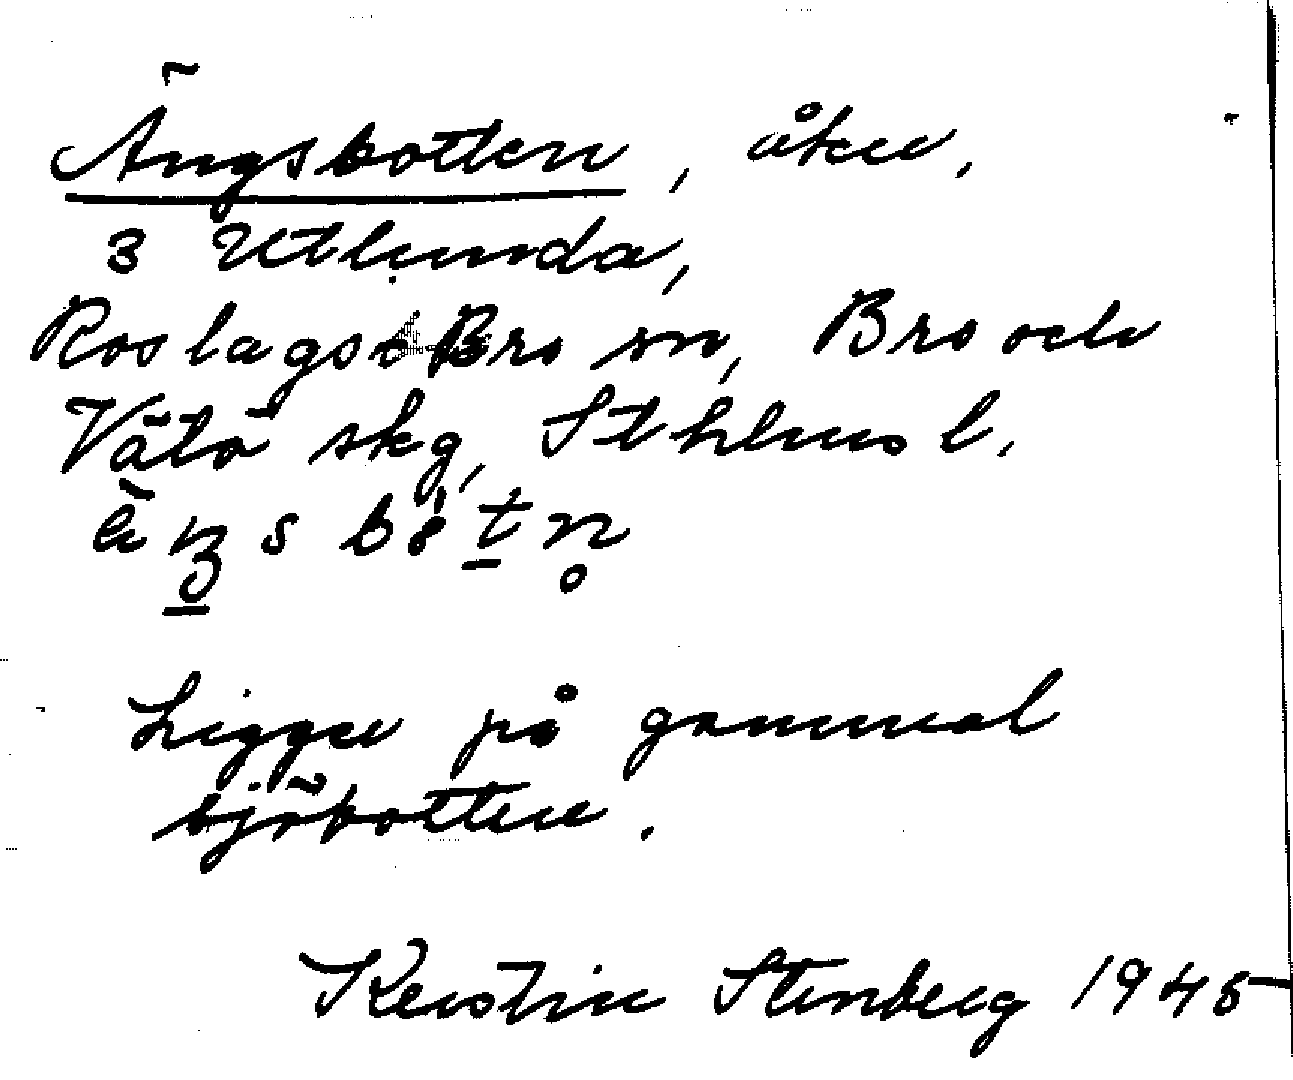 Ängsbotten, åker,
3 Utlunda,
Roslags-Bro sn, Bro och
Vätö skg, Sthlms l.
Ligger på gammal
sjöbotten.
Kerstin Stenberg 1945